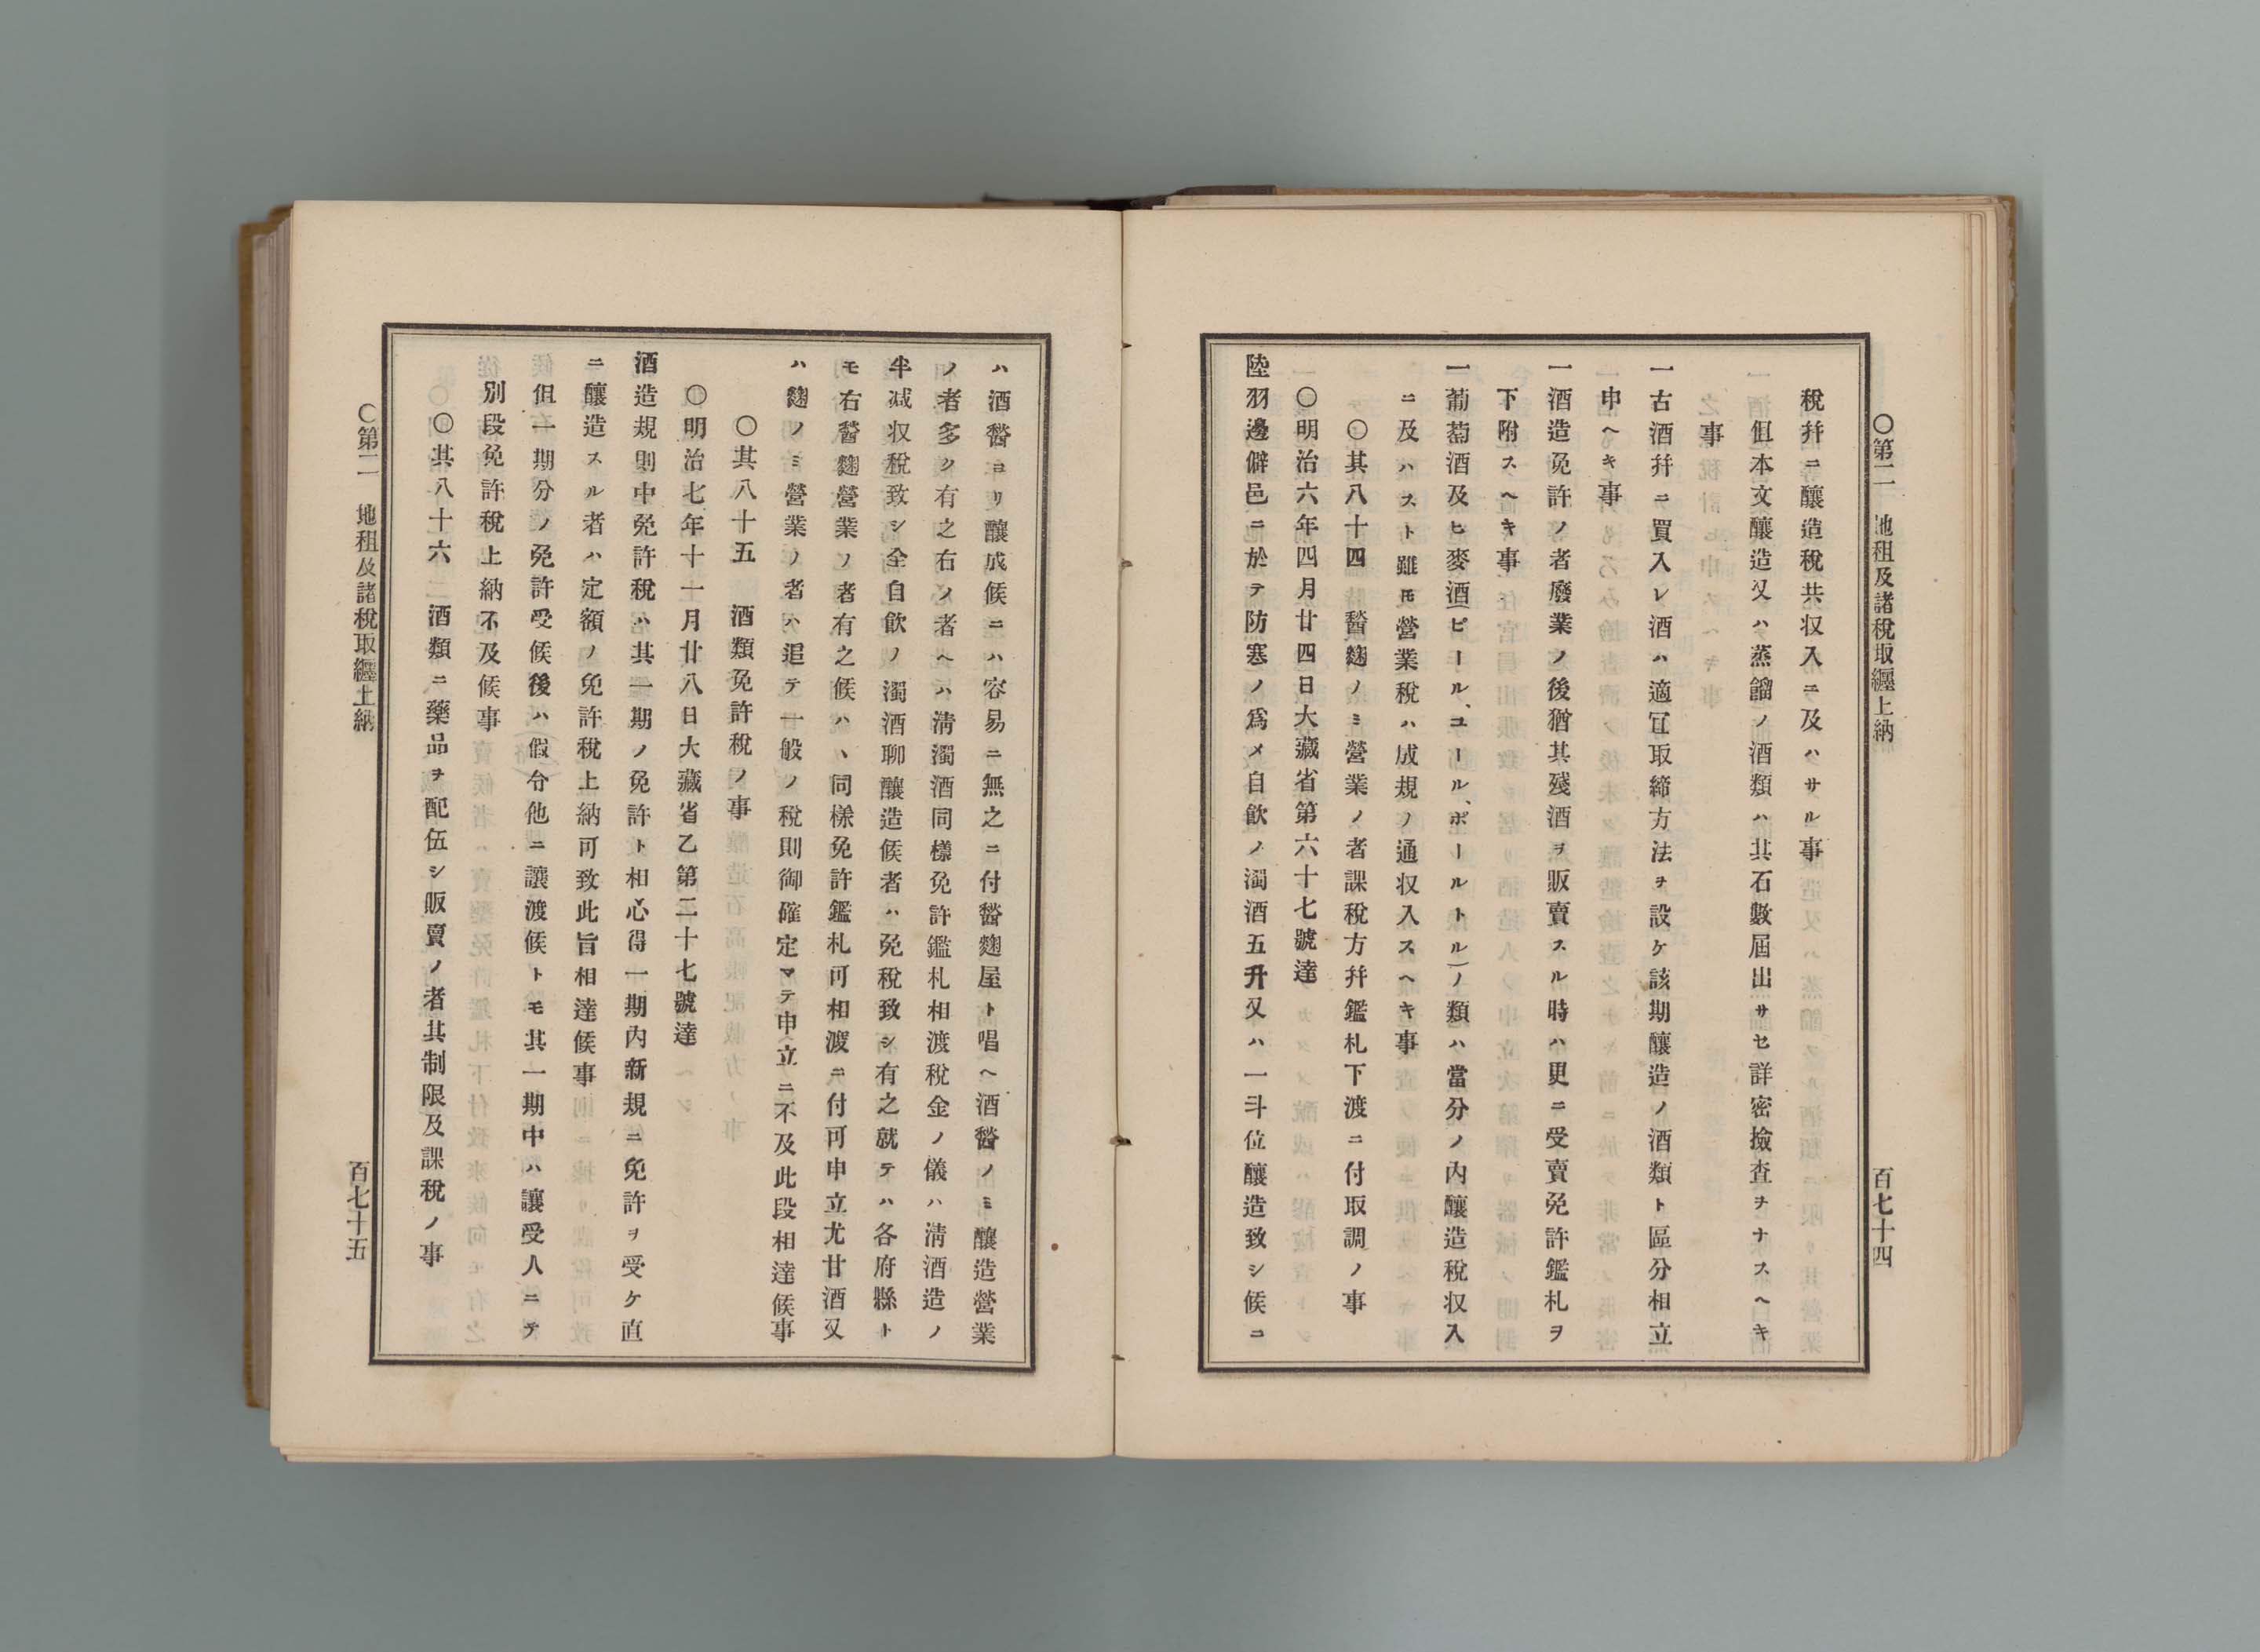 〇第二　地租及諸税取纒上納　百七十四
税幷ニ釀造税共収入ニ及ハサル事
但本文釀造又ハ蒸餾ノ酒類ハ其石數屆出サセ詳密撿査ヲナスヘキ
之事
一古酒幷ニ買入レ酒ハ適冝取締方法ヲ設ケ該期釀造ノ酒類ト區分相立
申ヘキ事
一酒造免許ノ者廢業ノ後猶其殘酒ヲ販賣スル時ハ更ニ受賣免許鑑札ヲ
下附スヘキ事
一葡萄酒及ヒ麥酒(ピールユール、ポールトル)ノ類ハ當分ノ內釀造税収入
ニ及ハスト雖モ營業税ハ成規ノ通収入スヘキ事
〇其八十四　醫麹ノミ營業ノ者課税方幷鑑札下渡ニ付取調ノ事
〇明治六年四月廿四日大藏省第六十七號達
陸羽邊僻邑ニ於テ防寒ノ爲メ自飮ノ濁酒五升又ハ一斗位釀造致シ候ニ
ハ酒醫ヨリ釀成候ニハ容易ニ無之ニ付醫麹屋ト唱ヘ酒醫ノミ釀造營業
ノ者多ク有之右ノ者ヘハ淸濁酒同樣免許鑑札相渡税金ノ儀ハ淸酒造ノ
半减収税致シ全自飮ノ濁酒聊釀造候者ハ免税致シ有之就テハ各府縣ト
モ右醫麹營業ノ者有之候ハヽ同樣免許鑑札可相渡ニ付可申立尤甘酒又
ハ麹ノミ營業ノ者ハ追テ一般ノ税則御確定マテ申立ニ不及此段相達候事
〇其八十五　酒類免許税ノ事
〇明治七年十一月廿八日大藏省乙第二十七號達
酒造規則中免許税ハ其一期ノ免許ト相心得一期內新規ニ免許ヲ受ケ直
ニ釀造スル者ハ定額ノ免許税上納可致此旨相達候事
但一期分ノ免許受候後ハ假令他ニ讓渡候トモ其一期中ハ讓受人ニテ
別段免許税上納不及候事
〇其八十六　酒類ニ藥品ヲ配伍シ販賣ノ者其制限及課税ノ事
〇第二　地租及諸税取纒上納　百七十五